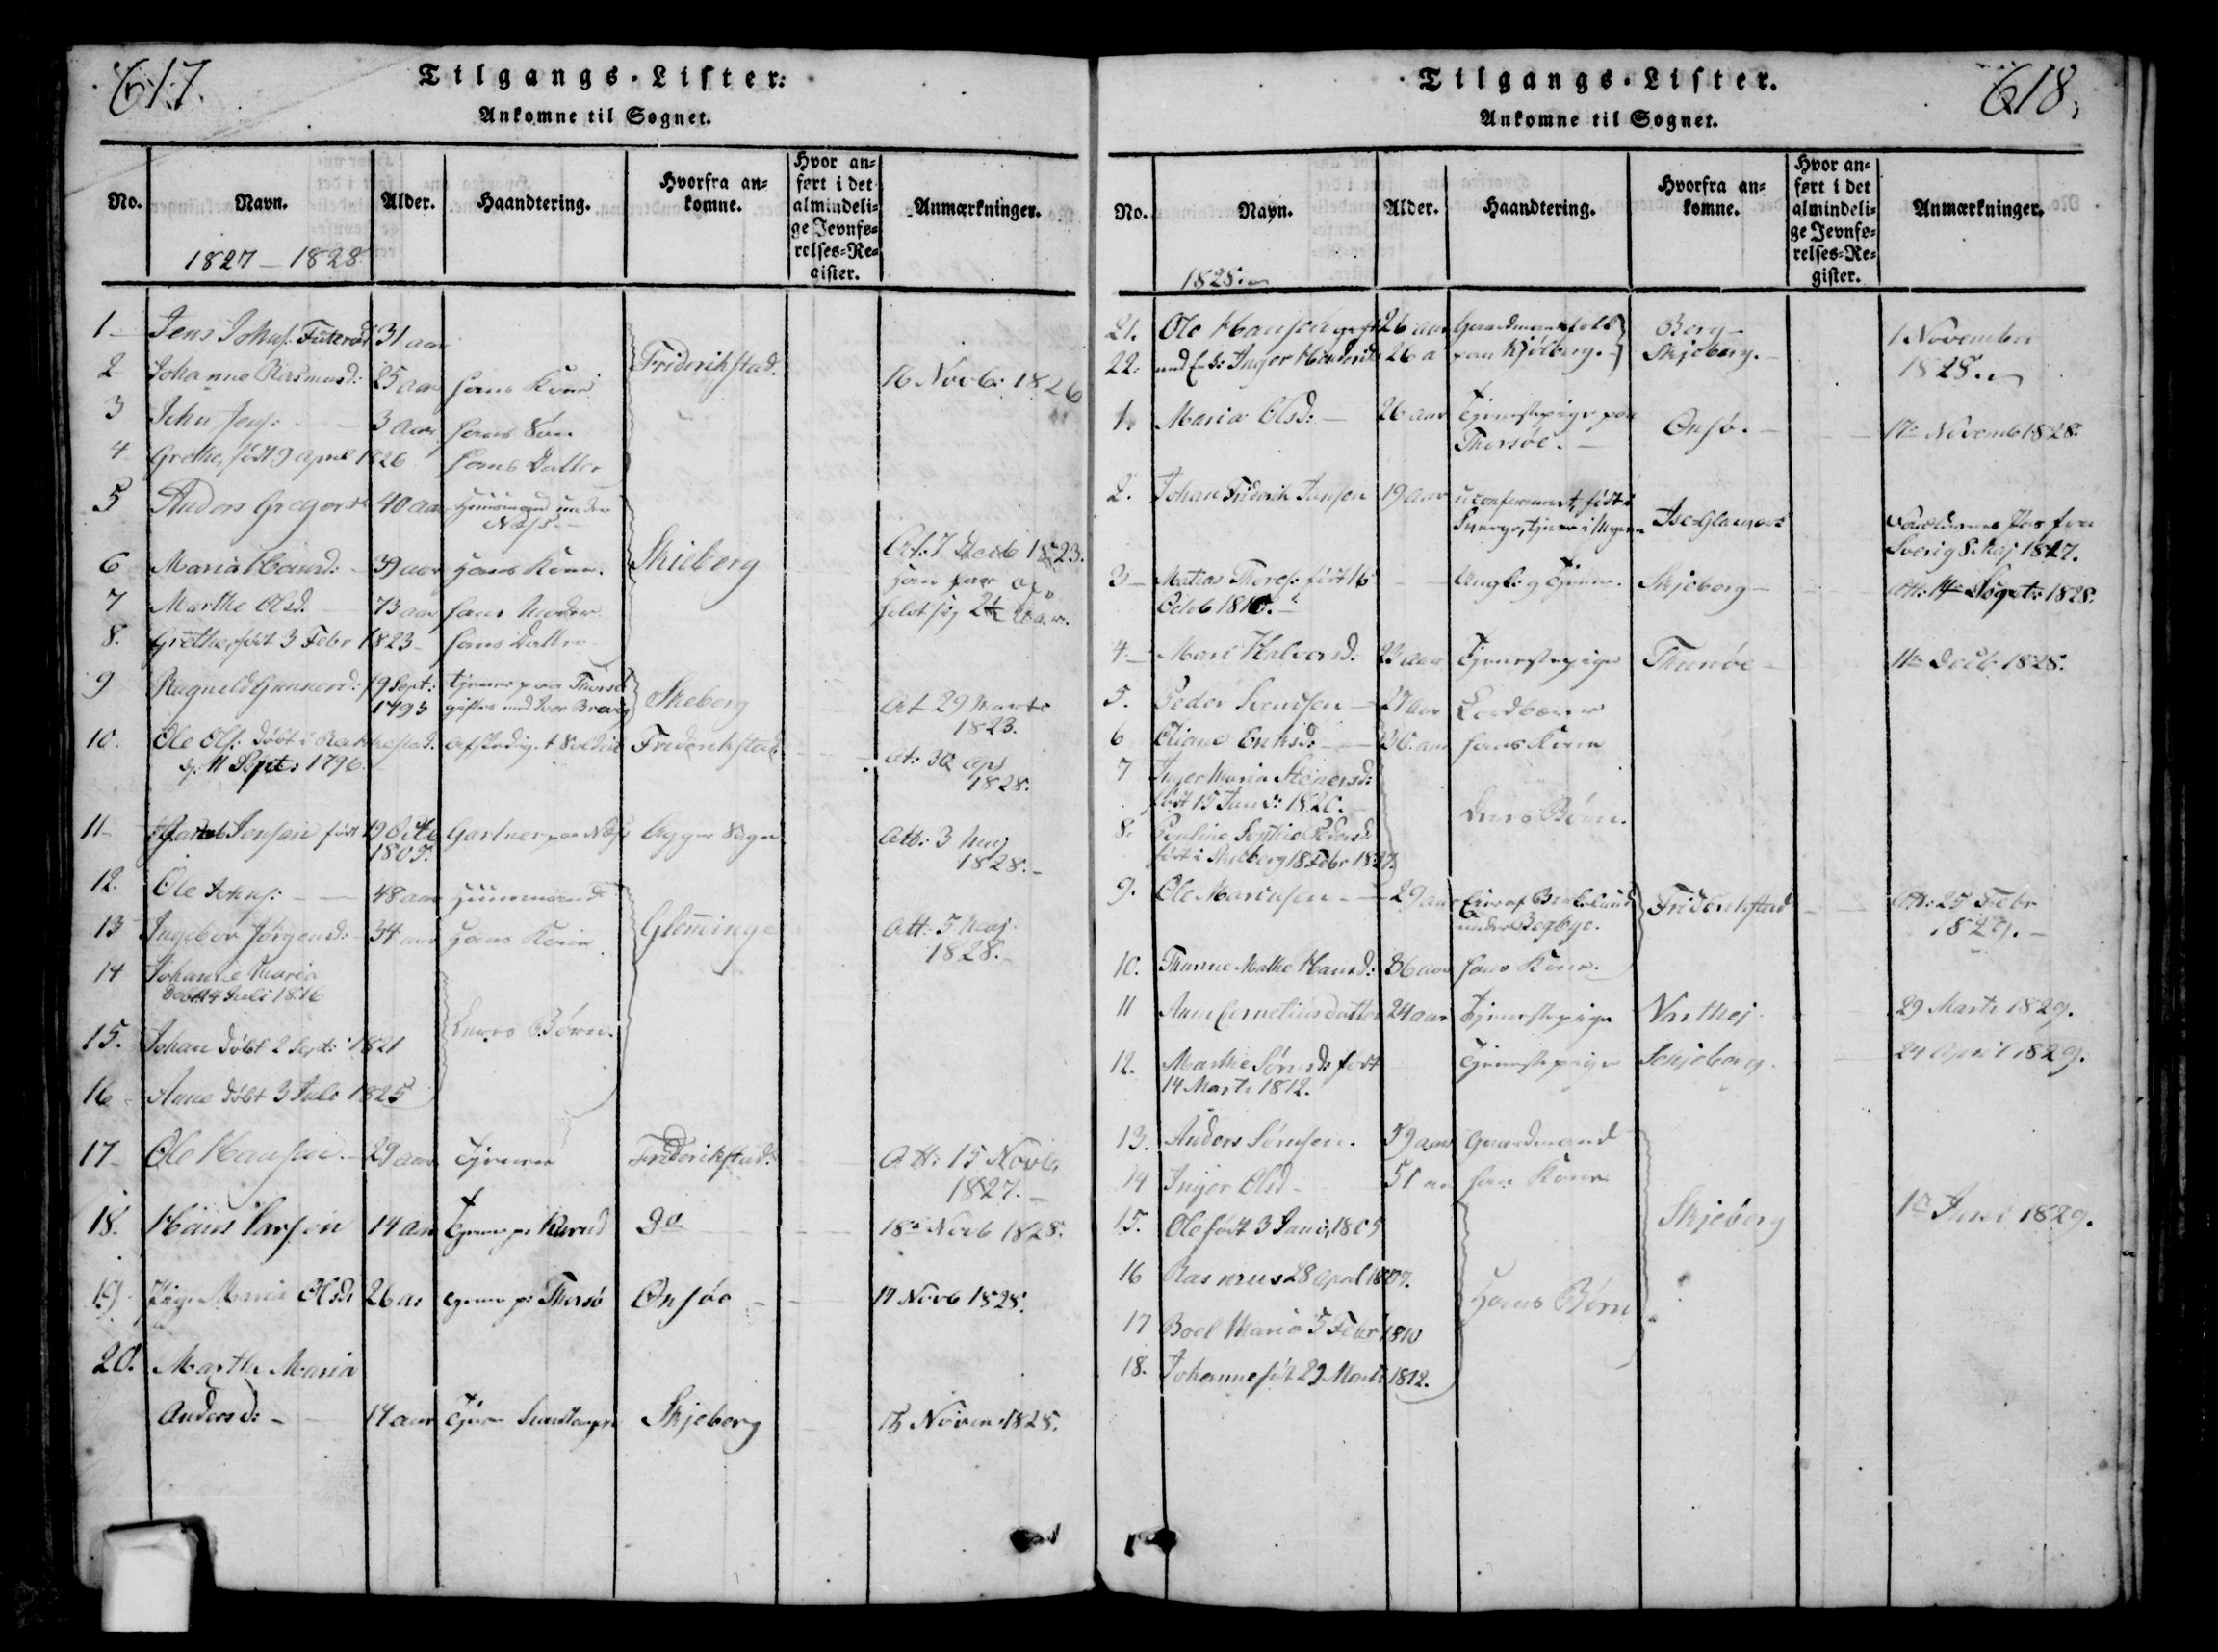 617.
Tilgangs-Lister.
Ankomne til Sognet.
No.
Navn.
Alder.
Haandtering.
Hvorfra an-
komne.
Hvor an-
ført i det
almindeli-
ge Jevnfø-
relses-Re-
gister.
Anmærkninger.
1827 – 1828
1 Jens Johns: 31 aar
2 Johanne Rasmusd: 25 aar hans Kone Friderikstad. 16 Novb: 1826
3 John Jens: 3 aar hans Søn
4 Grethe, født 9 April 1826 hans Datter
5 Anders Gregers: 40 aar Huusmand under
Næss
6 Maria Hansd: 39 aar Hans Kone. Skieberg Att: 7 Decb 1823.
7 Marthe Olsd. 73 aar hans Moder
8. Grethe, født 3 Febr 1823 hans Datter
9 Ragnild Gunnersd: 19 Sept: tjener paa Thorsø
1793 giftes med Iver Brevig Skeberg At 29 Marts
1823.
10. Ole Ols: døbt i Rakkestad. Afskediget Soldat Friderikstad At: 30 Apr
d: 11 Sept: 1796. 1828.
11 Jonsen født 19 Octb Gartner paa Næss Aggers Sogn Att: 3 Maj
1805. 1828.
12. Ole Johns: 48 aar Huusmand
13 Ingebor Jørgensd: 34 aar Hans Kone Glemminge Att: 5 Maj
1828.
14 Johanne Maria
døbt 14 Juli 1816
15. Johan døbt 2 Sept: 1821 Deres Børn.
16 Anne døbt 3 Juli 1825
17 Ole Hansen. 29 aar Tjener Friderikstad. Att: 15 Novb
1827.
18. Hans Larsen 14 aar Tjener pa Do 18 Novb 1828.
19 Pige Maria Olsd: 26 a: tjener pa Thorsø Onsøe 17 Novb 1828.
20. Marthe Maria
Andersd: 14 aar Tjener Skjeberg 15 Novem 1828.
618.
Tilgangs-Lister.
Ankomne til Sognet.
No.
Navn.
Alder.
Haandtering.
Hvorfra an-
komne.
Hvor an-
ført i det
almindeli-
ge Jevnfø-
relses-Re-
gister.
Anmærkninger.
1828.
21. Ole Hansen 26 aar Gaardmandsfolk Berg 1 November
22. Inger 26 a paa Kjølberg. Skjeberg. 1828.
1. Maria Olsd: 26 aar Tjenestepige paa
Thorsøe. Onsø. 17 Novemb 1828.
2. Johan Friderik Jansen 19 aar uconfirmeret, født i
Sverge, tjener i Pas fra
Sverig 8. Maj 1827.
3 Matias Thores: født 16 Ungk: og Tjener. Skjeberg Att: 14 Sept: 1828.
Octob 1810.
4 Mari Halvorsd. 23 aar Tjenestepige Thunøe 11 Decb. 1828.
5. Peder Svendsen 27 aar
6 Eliane Eriksd: 30 aar hans Kone
7 Inger Maria Stenersd:
født 15 Jan: 1820. Deres Børn.
8. Pouline Sophie Pedersd:
født i Skieberg 18 Febr 1827.
9. Ole Marensen 29 aar Friderikstad Att: 25 Febr
under Begbye. 1829.
10. Thurine Malke Hansd: 36 aar hans Kone.
11 Anne Corneliusdatter 24 aar Tjenestepige Varthej 29 Marts 1829.
12. Marthe Sørensd: født Tjenestepige Schjeberg. 24 April 1829.
14 Marts 1812.
13. Anders Sørensen. 59 aar Gaardmand
14 Inger Olsd 51 aar hans Kone
15. Ole født 3 Juni, 1805 Skjeberg 1 Juni 1829.
16 Rasmus 28 April 1807.
Hans Børn
17 Boel Maria 5 Febr 1810
18. Johanne født 29 Marts 1812.